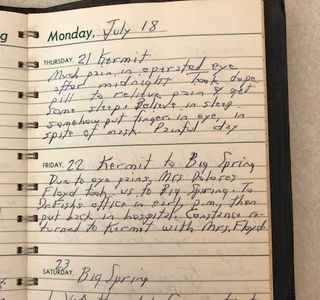 Monday, July 18
THURSDAY, 21 Kermit
Much pain in operated eye
after midnight. Took dope
pill to relieve pain & get
some sleep! Believe in sleep
somehow put finger in eye, in
spite of mask. Painful day
FRIDAY, 22 Kermit to Big Spring
Due to eye pains, Mrs Dolores
Floyd took us to Big Spring to
Dr Fish's office in early p.m, then
put back in hospital. Constance re-
turned to Kermit with Mrs. Floyd
23
SATURDAY, Big Spring